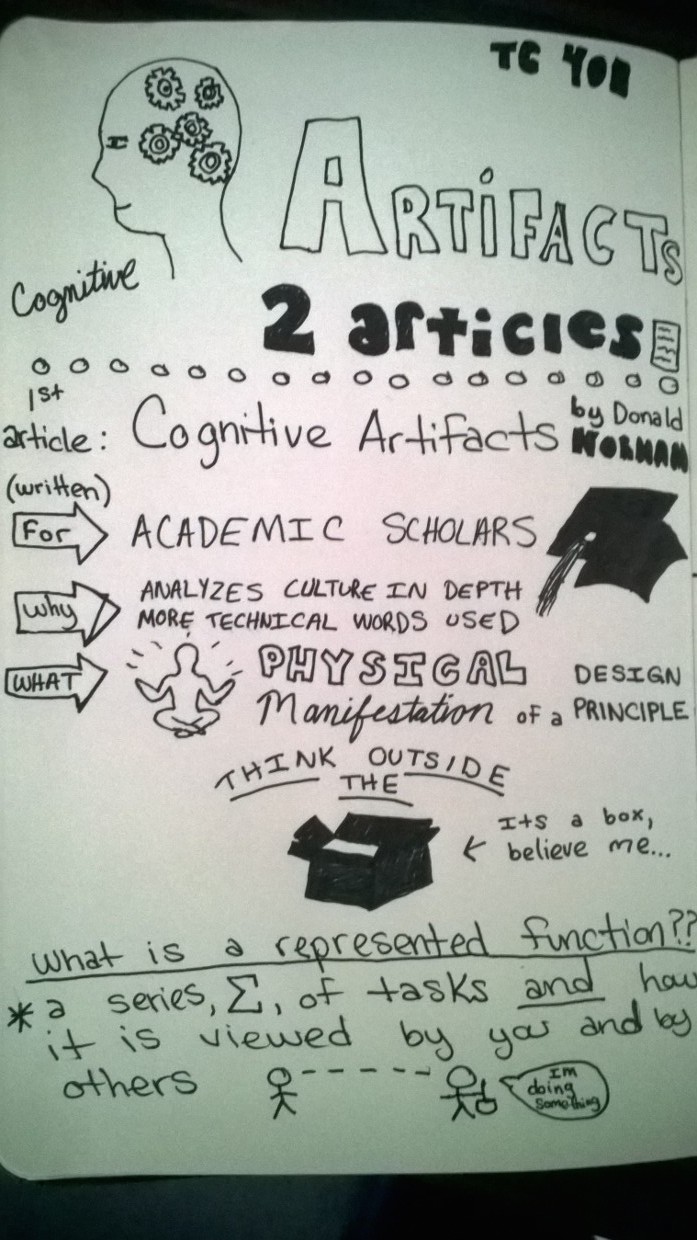 TO YOU
Cognitive ARTiFACTs
2 articles
1st
article: Cognitive Artifacts by Donald NORMAN
(written)
For ACADEMIC SCHOLARS
Why ANALYZES CULTURE IN DEPTH
MORE TECHNICAL WORDS USED
WHAT PHYSICAL DESIGN
Manifestation of a PRINCIPLE
THINK OUTSIDE
THE
Its a box,
believe me...
what is a represented function??
* a series, Σ, of tasks and how
it is viewed by you and by
others
I'm
doing
something